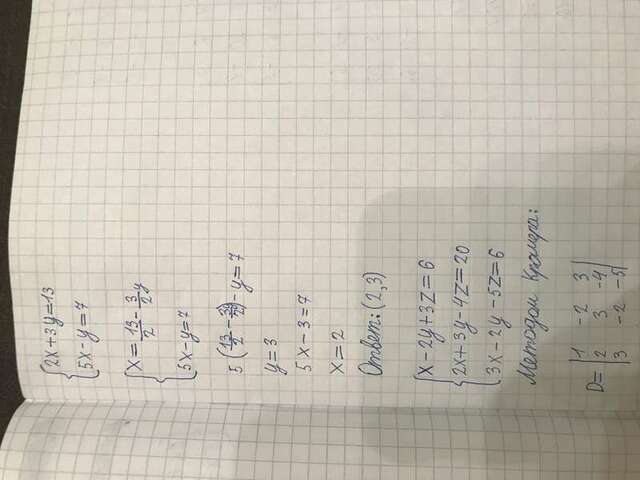 2x+3y=13
5x-y=7
x=13/2-3/2y
5x-y=7
5(13/2-3y/2)-y=7
y=3
5x-3=7
x=2
Ответ: (2,3)
x-2y+3z=6
2x+3y-4z=20
3x-2y-5z=6
Методом Крамера:
D=|1 -2 3|
|2 3 -4|
|3 -2 -5|